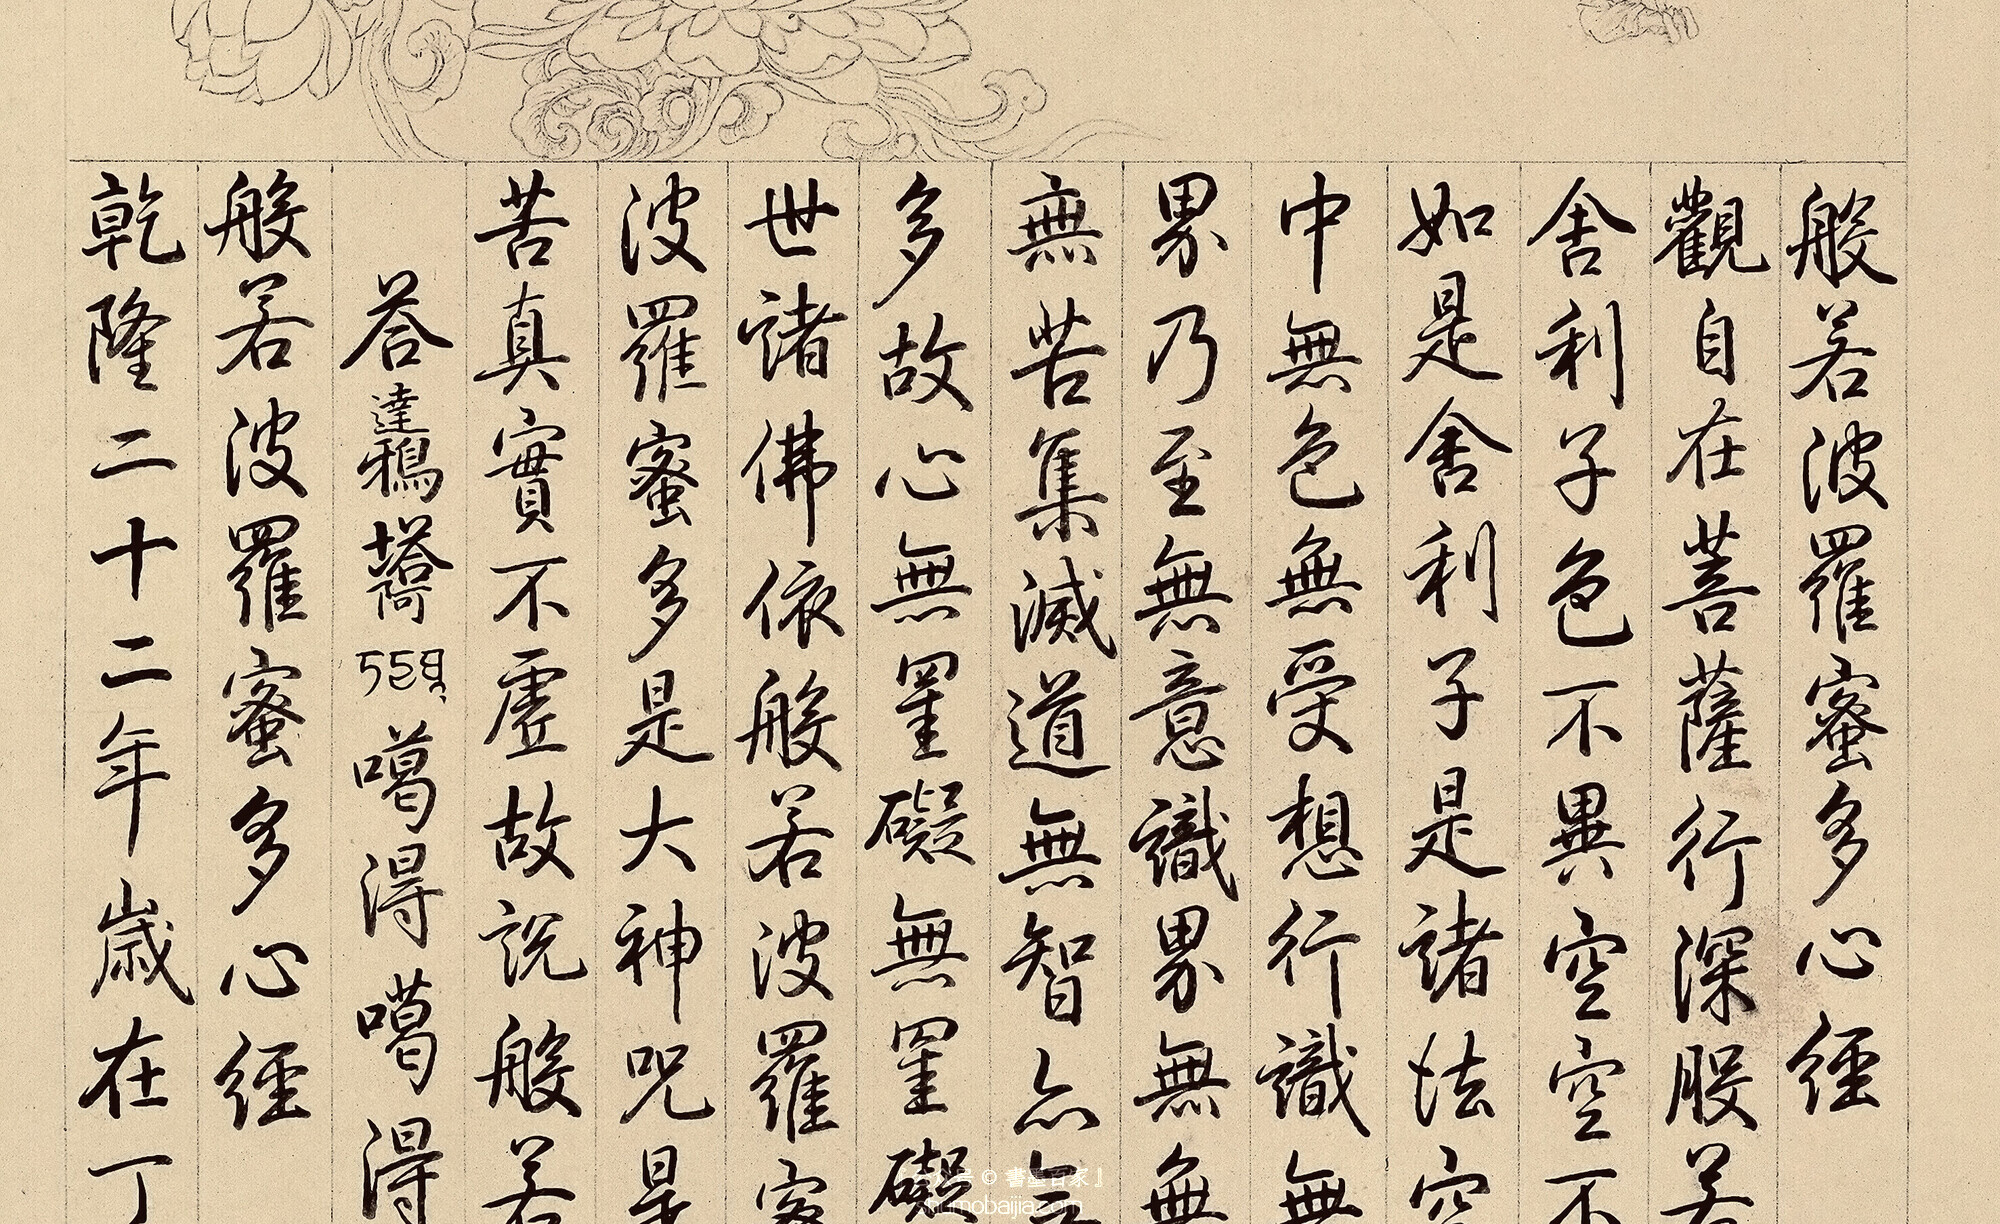 般若波羅蜜多心經
觀自在菩薩行深般若
舍利子色不異空空不
如是舍利子是諸法空
中無色無受想行識無
界乃至無意識界無無
無苦集滅道無智亦無
多故心無罣礙無罣礙
世諸佛依般若波羅蜜
波羅蜜多是大神呪是
苦真實不虛故說般若
答達鴉塔噶得噶得
般若波羅蜜多心經
乾隆二十二年歲在丁
書畫百家
shumobaijia.com